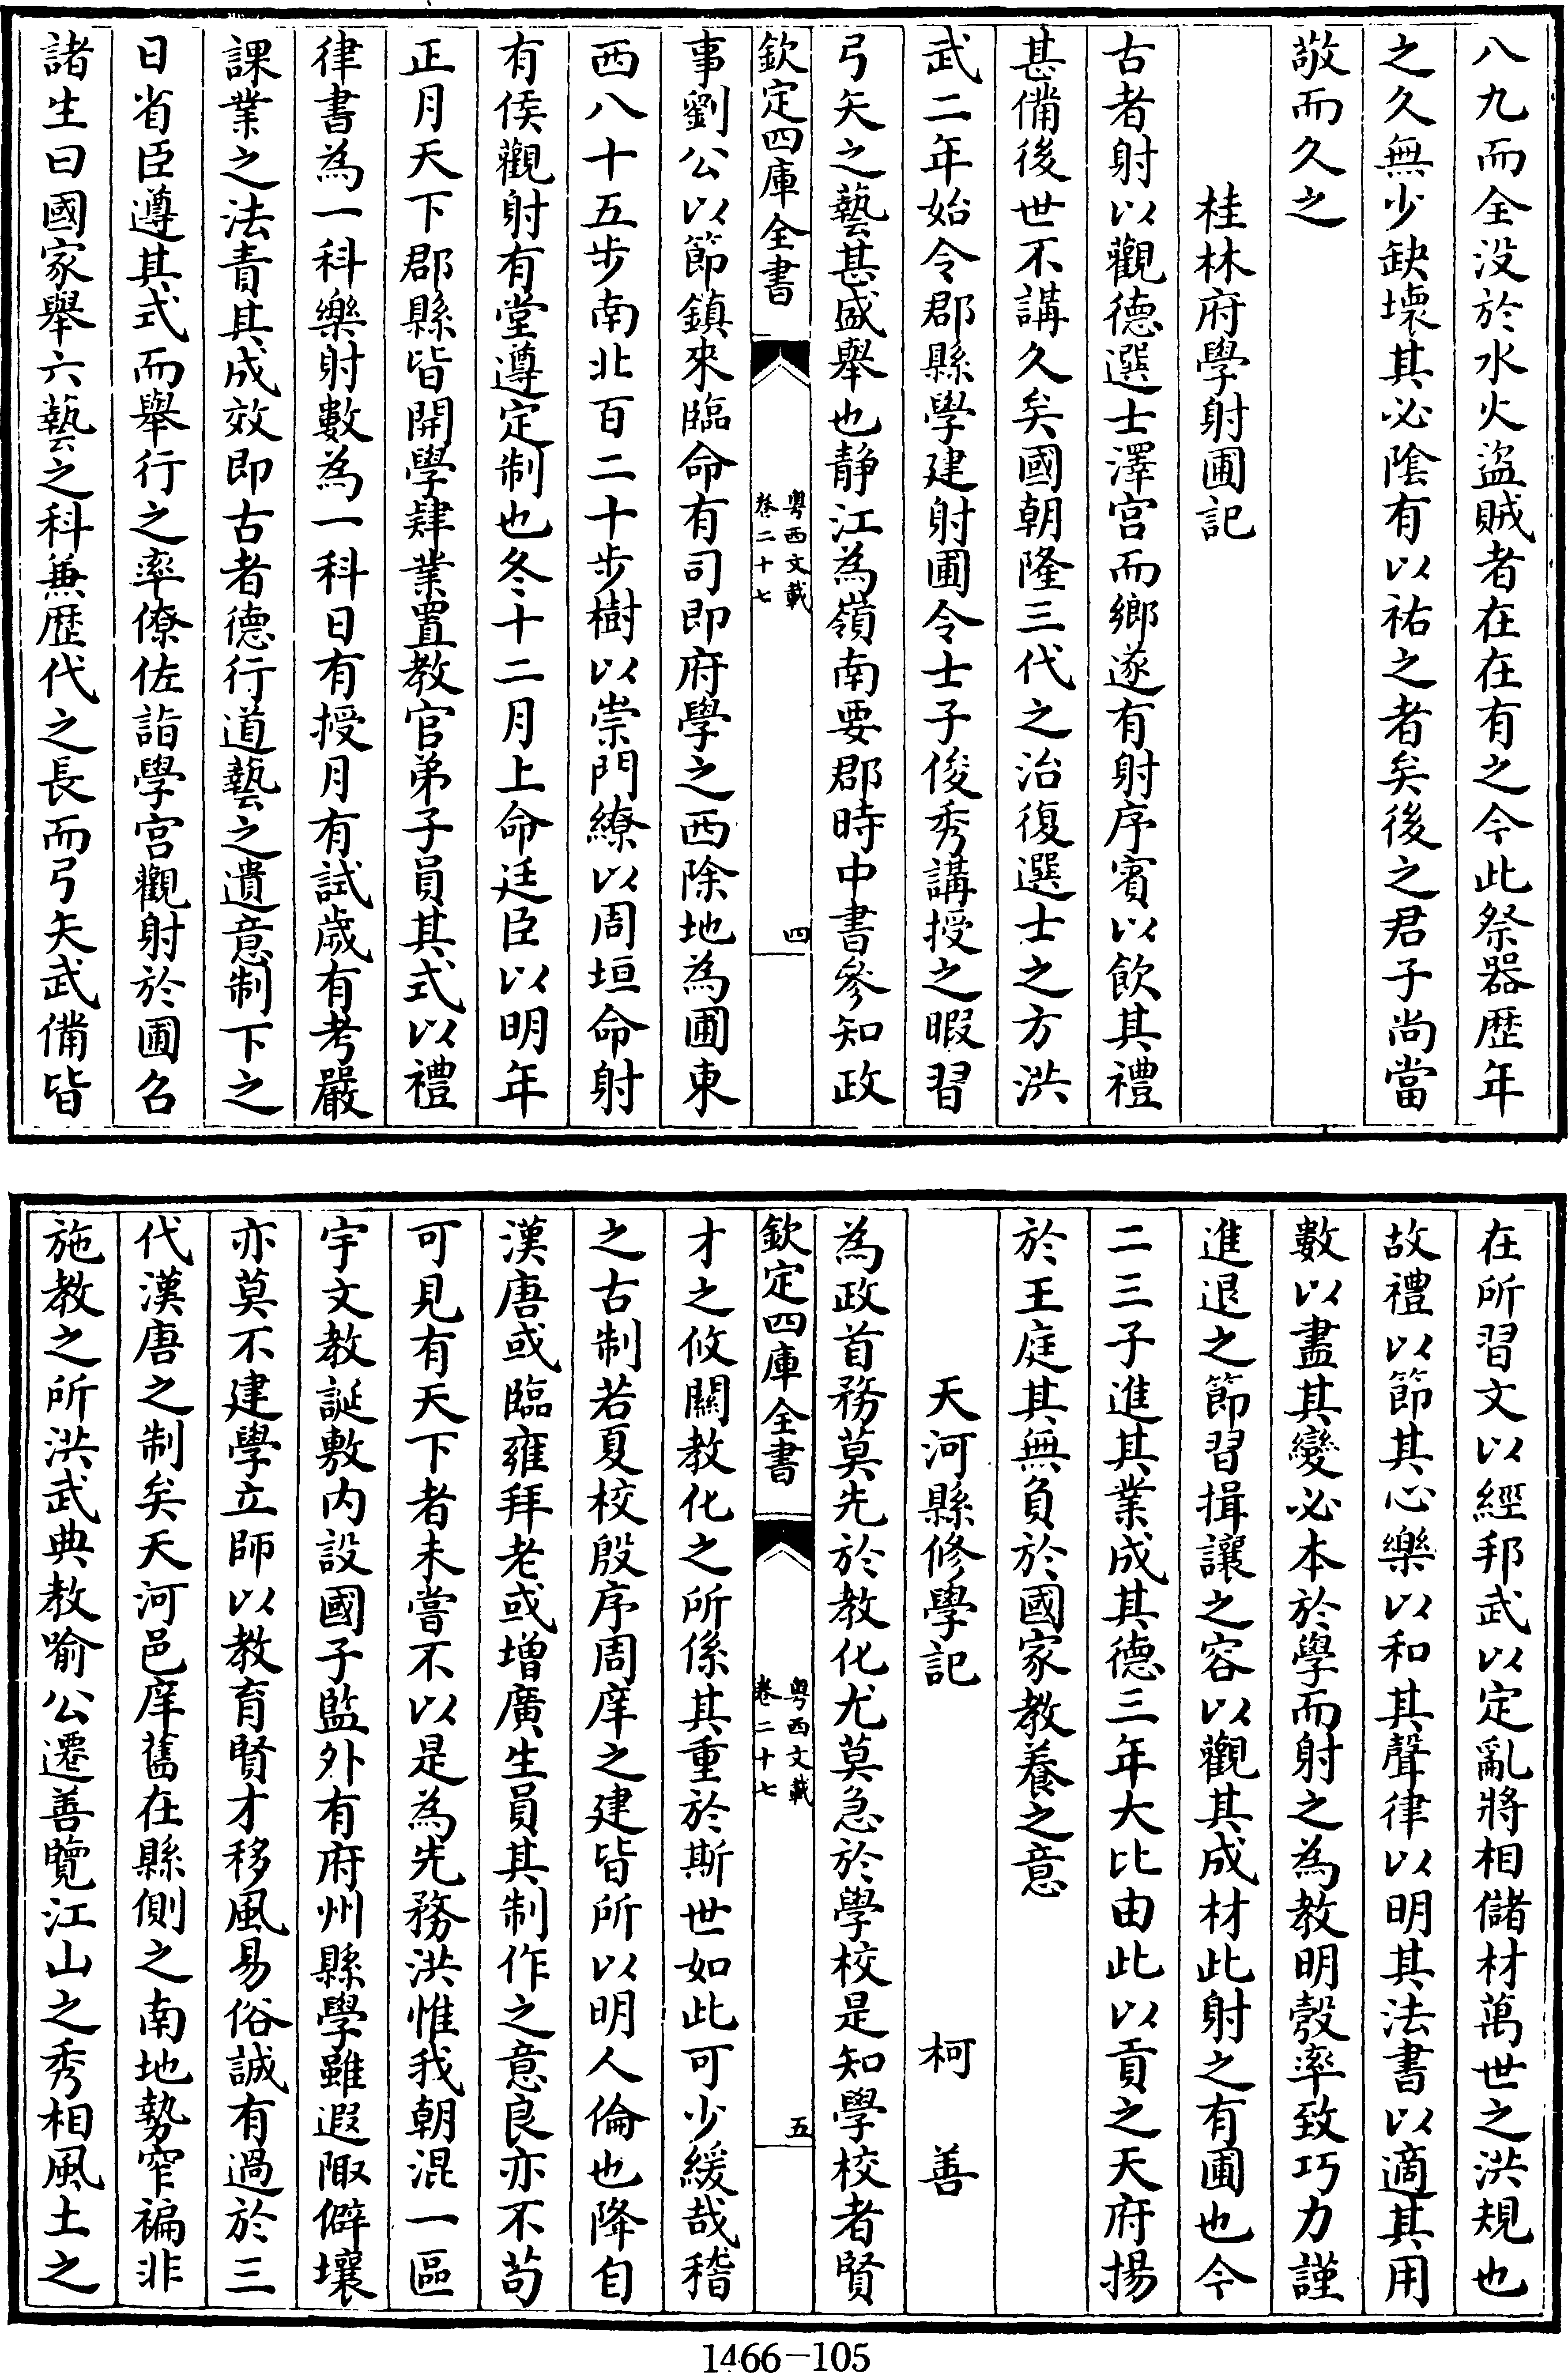 八九而全没於水火盜賊者在在有之今此祭器歴年
之久無少缺壞其必隂有以祐之者矣後之君子尚當
敬而久之
桂林府學射圃記
古者射以觀德選士澤宫而鄉遂有射序賓以飲其禮
甚備後世不講久矣國朝隆三代之治復選士之方洪
武二年始令郡縣學建射圃令士子俊秀講授之暇習
弓矢之藝甚盛舉也静江為嶺南要郡時中書參知政
欽定四庫全書
粤西文載
卷二十七
四
事劉公以節鎮來臨命有司即府學之西除地為圃東
西八十五步南北百二十步樹以崇門繚以周垣命射
有侯觀射有堂遵定制也冬十二月上命廷臣以明年
正月天下郡縣皆開學肄業置教官弟子員其式以禮
律書為一科樂射數為一科日有授月有試歲有考嚴
課業之法責其成效即古者德行道藝之遺意制下之
日省臣遵其式而舉行之率僚佐詣學宫觀射於圃名
諸生曰國家舉六藝之科兼歴代之長而弓矢武備皆
在所習文以經邦武以定亂將相儲材萬世之洪規也
故禮以節其心樂以和其聲律以明其法書以適其用
數以盡其變必本於學而射之為教明彀率致巧力謹
進退之節習揖讓之容以觀其成材此射之有圃也今
二三子進其業成其德三年大比由此以貢之天府揚
於王庭其無負於國家教養之意
天河縣修學記 柯善
為政首務莫先於教化尤莫急於學校是知學校者賢
欽定四庫全書
粤西文載
卷二十七
五
才之攸關教化之所係其重於斯世如此可少緩哉稽
之古制若夏校殷序周庠之建皆所以明人倫也降自
漢唐或臨雍拜老或增廣生員其制作之意良亦不苟
可見有天下者未嘗不以是為先務洪惟我朝混一區
宇文教誕敷内設國子監外有府州縣學雖遐陬僻壤
亦莫不建學立師以教育賢才移風易俗誠有過於三
代漢唐之制矣天河邑庠舊在縣側之南地勢窄褊非
施教之所洪武典教喻公遷善覽江山之秀相風土之
1466-105